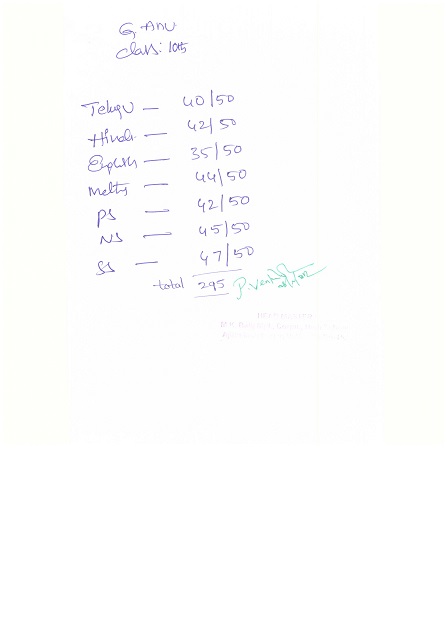 G. Anu
Class: 10th
Telugu — 40/50
Hindi — 42/50
English — 35/50
Maths — 44/50
PS — 42/50
NS — 45/50
SS — 47/50
total 295 P. Venk